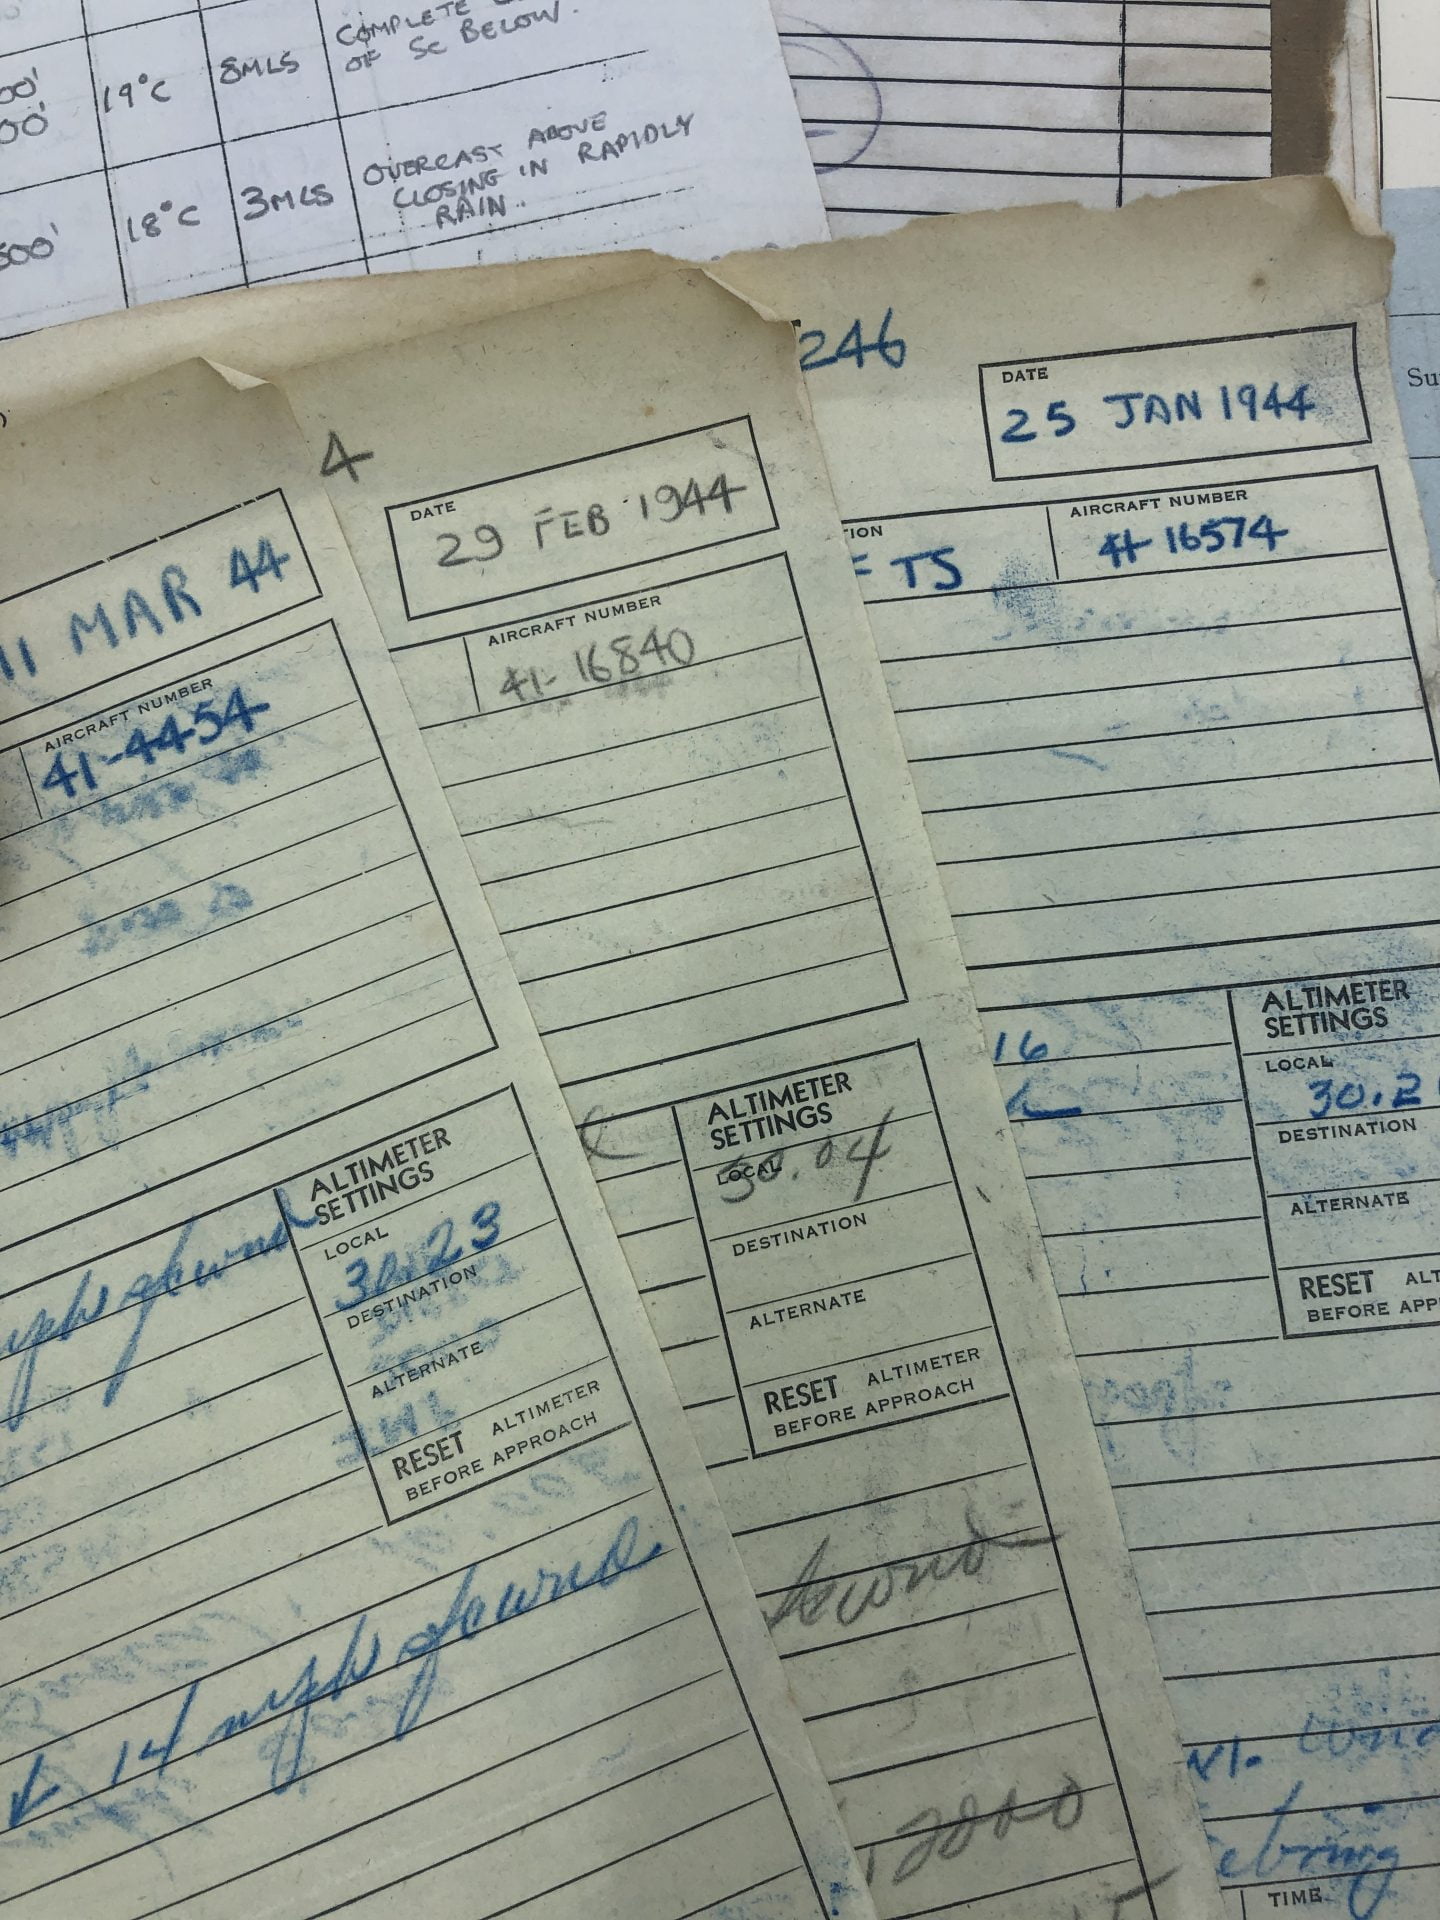 COMPLETE
OF Sc BELOW.
00'
00'
19°C
8MLS
500'
18°C
3MLS
OVERCAST ABOVE
CLOSING IN RAPIDLY
RAIN.
11 MAR 44
AIRCRAFT NUMBER
41-4454
ALTIMETER
SETTINGS
LOCAL
30.23
DESTINATION
ALTERNATE
RESET ALTIMETER
BEFORE APPROACH
14 mph
4
DATE
29 FEB 1944
AIRCRAFT NUMBER
41-16840
ALTIMETER
SETTINGS
LOCAL
30.04
DESTINATION
ALTERNATE
RESET ALTIMETER
BEFORE APPROACH
246
DATE
25 JAN 1944
ION
TS
AIRCRAFT NUMBER
41-16574
16
ALTIMETER
SETTINGS
LOCAL
30.2
DESTINATION
ALTERNATE
RESET ALT
BEFORE APP
TIME
Su